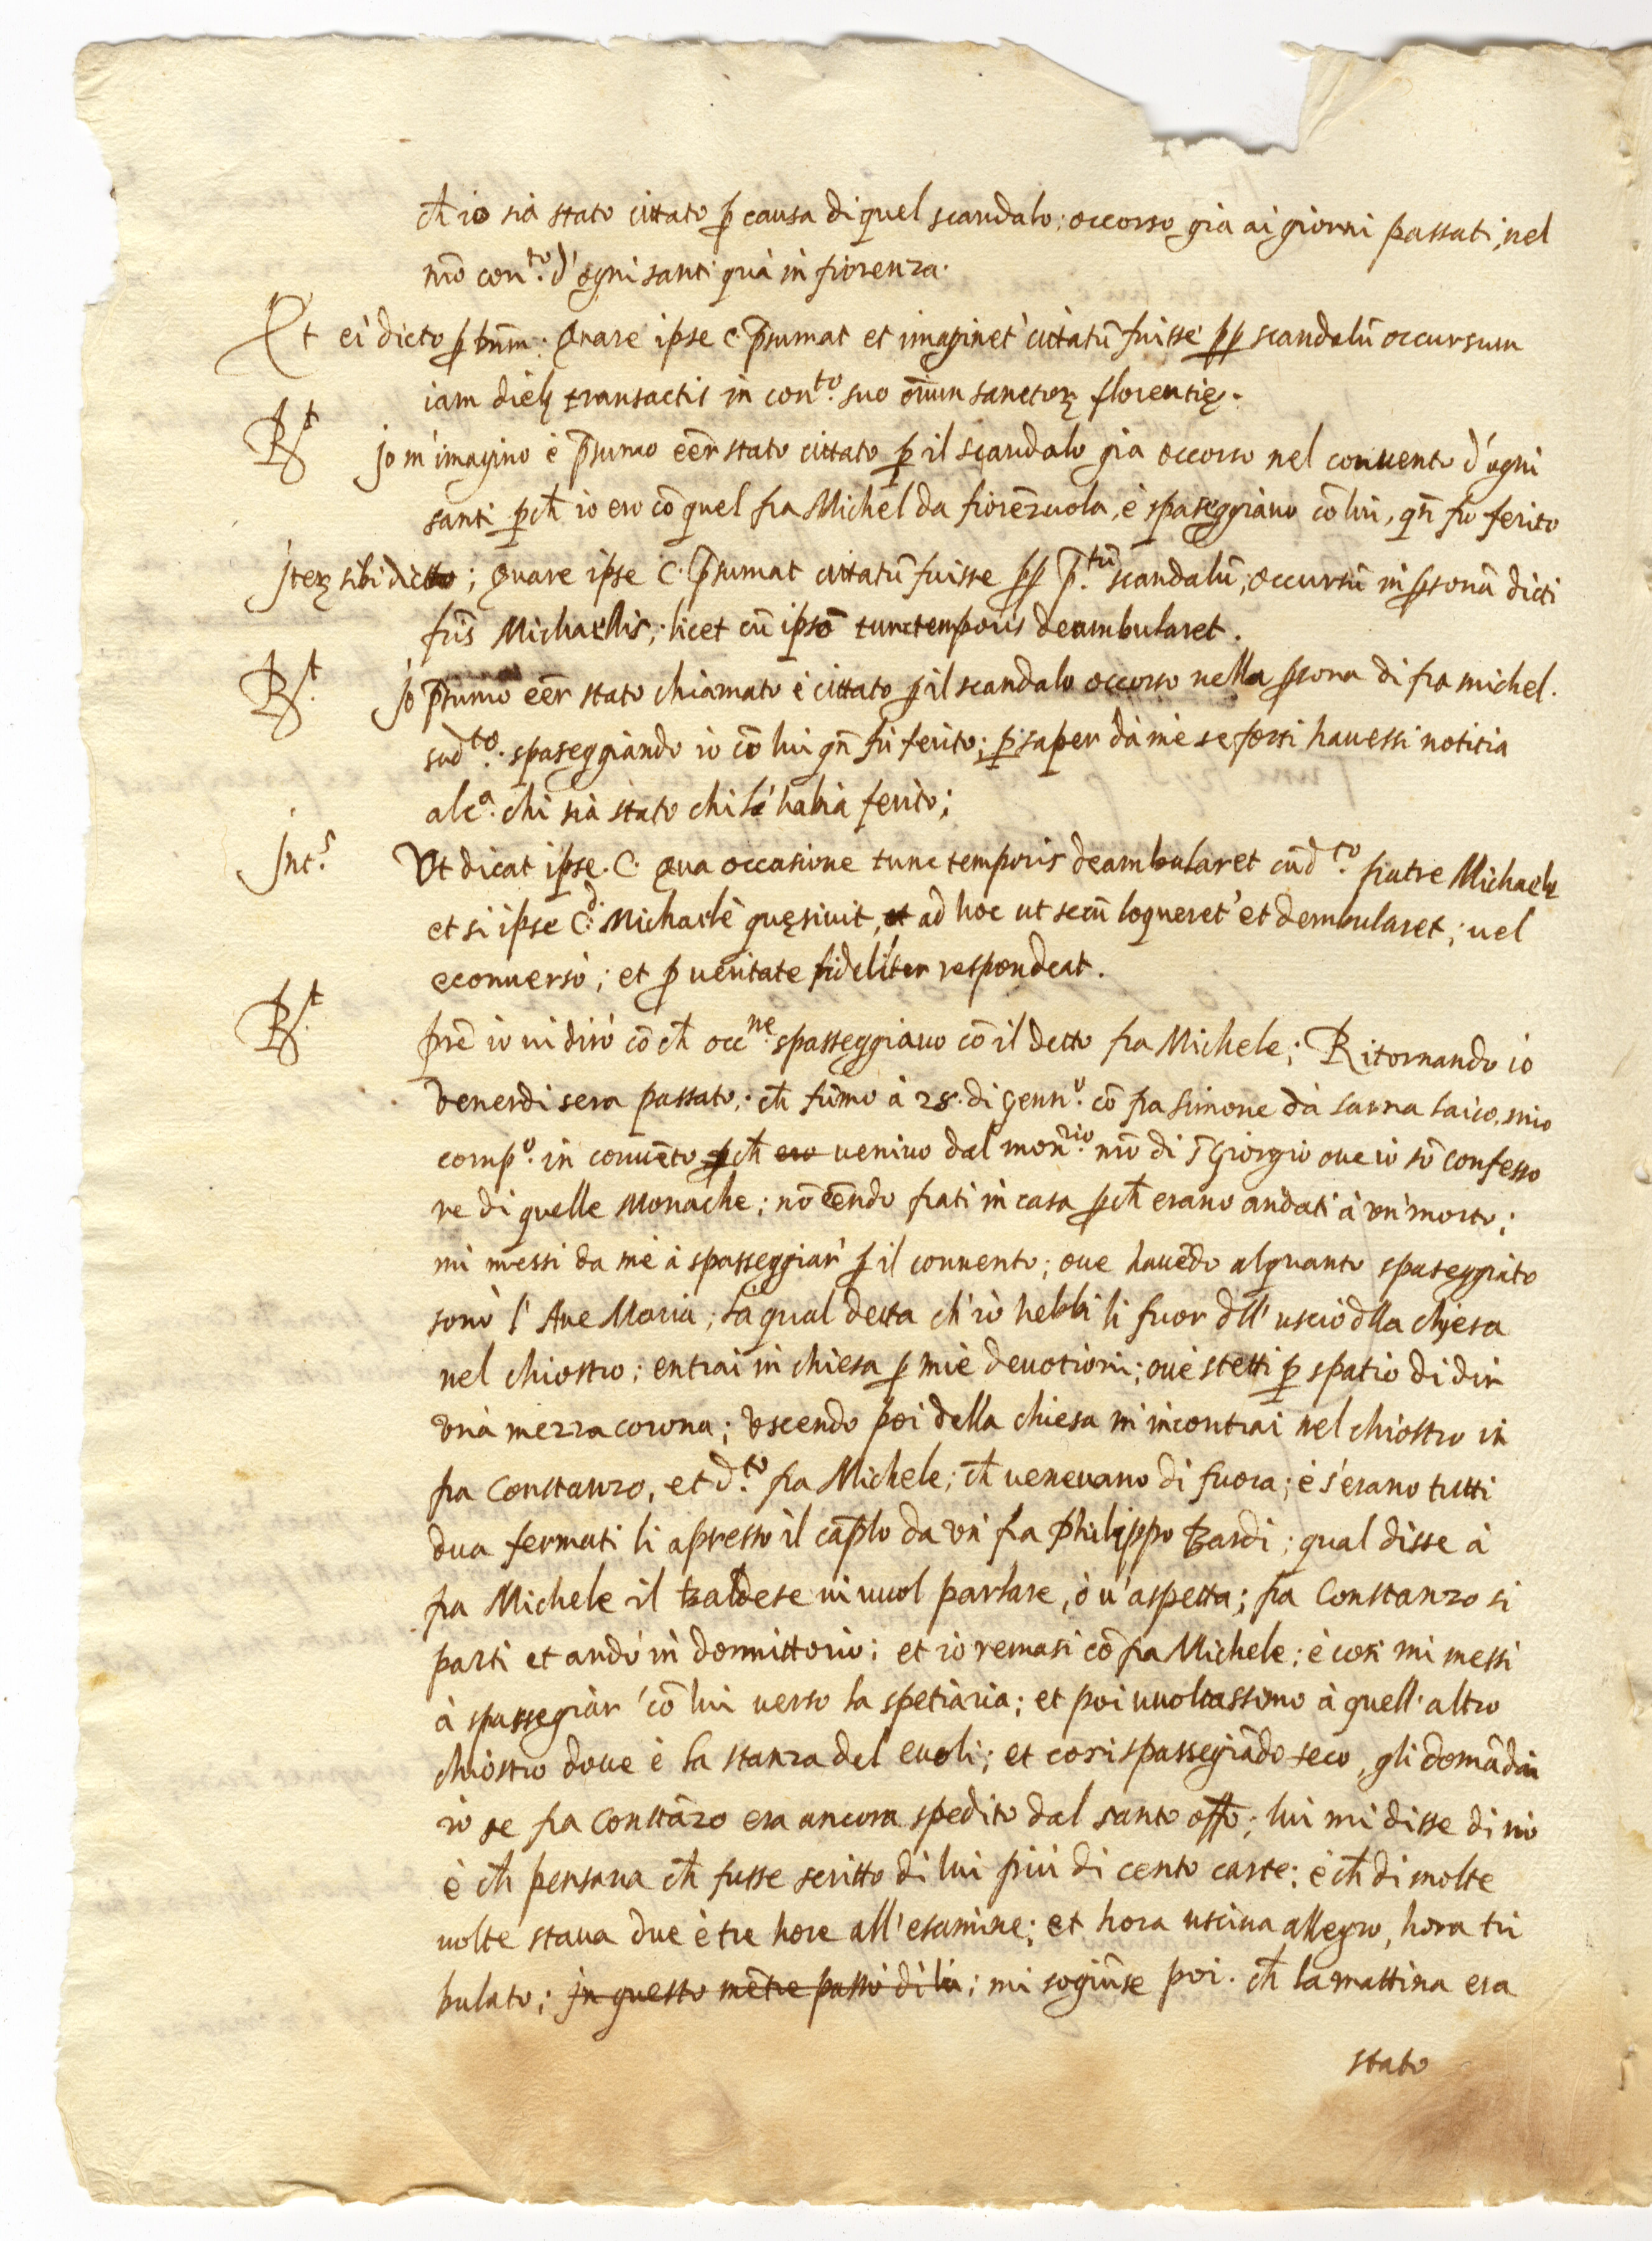 ch̄ io sia stato cittato p̱ causa di quel scandalo; occorso gia ai giorni passati, nel
nr̄o con.to d'ogni santi quà in fiorenza.
Et ei dicto p̱ : Quare ipse C. p̄sumat et imaginet' cittatū fuisse pp scandalū occursum
iam dieb; transactis in con.to suo oīum sanctorꝝ florentię.
R.t Jo m'imagino è p̄sumo eēr stato cittato p̱ il scandalo gia occorso nel convento d'ogni
santi p̱ch̄ io ero cō quel fra Michel da fiorēzuola, è spaseggiavo cō lui, qn̄ fu ferito
Iteꝝ sibi dicto; Quare ipse C. p̄sumat cittatū fuisse pp p̄.tū scandalū, occursū in p̱sonā dicti
fr̄is Michaelis; licet cū ipso tunc temporis deambularet.
R.t Jo p̄sumo eēr stato chiamato è cittato p̱ il scandalo occorso nella p̱sona di fra michel.
sud.to spaseggiando io cō lui qn̄ fù ferito; p̱ saper dà mè se forsi havessi notitia
alc.a chi sia stato chi l'habia ferito;
Int.s Vt dicat ipse C. Qua occasione tunc temporis deambularet cū d.to fratre Michaele
et si ipse C. d. Michaelē quęsivit, et ad hoc ut secū loqueret' et dembularet; vel
econverso; et p̱ veritate fideliter respondeat.
R.t pr̄e io vi dirò cō ch̄ occ.ne spasseggiavo cō il detto fra Michele; Ritornando io
venerdi sera passato; ch̄ fūmo à 28. di Genn.o cō fra Simone dà Sarna laico, mio
comp.o in convēto p̱ch̄ ero venivo dal mon.rio nr̄o di S. Giorgio ove io sō confesso
re di quelle Monache; nō eēndo frati in casa p̱ch̄ erano andati à un' morto;
mi messi da mè à spasseggiar' p̱ il convento; ove havēdo alquanto spaseggiato
sonò l'Ave Maria; la qual' detta ch'io hebbi li fuor dll' uscio dlla chiesa
nel chiostro; entrai in chiesa p̱ mie devotioni; ove stetti p̱ spatio di dir
una mezza corona; uscendo poi della chiesa m'incontrai nel chiostro in
fra Constanzo, et d.to fra Michele; ch̄ venevano di fuora; è s'erano tutti
dua fermati li apresso il cap̄lo da un' fra Philippo Bardi; qual disse à
fra Michele il baldese vi vuol parlare, ò v'aspetta; fra Constanzo si
parti et andò in dormittorio; et io remasi cō fra Michele; è cosi mi messi
à spassegiar' cō lui verso la spetiaria; et poi vuoltassimo à quell'altro
chiostro dove è la stanza del evoli; et cosi spassegiādo seco, gli domādai
io se fra Constāzo era ancora spedito dal santo offo; lui mi disse di nò
è ch̄ pensava ch̄ fusse scritto di lui più di cento carte; è ch̄ di molte
volte stava due è tre hore all'esamine; et hora usciva allegro, hora tri
bulato; in questo mētre passò di là; mi sogiūse poi. ch̄ la mattina era
stato